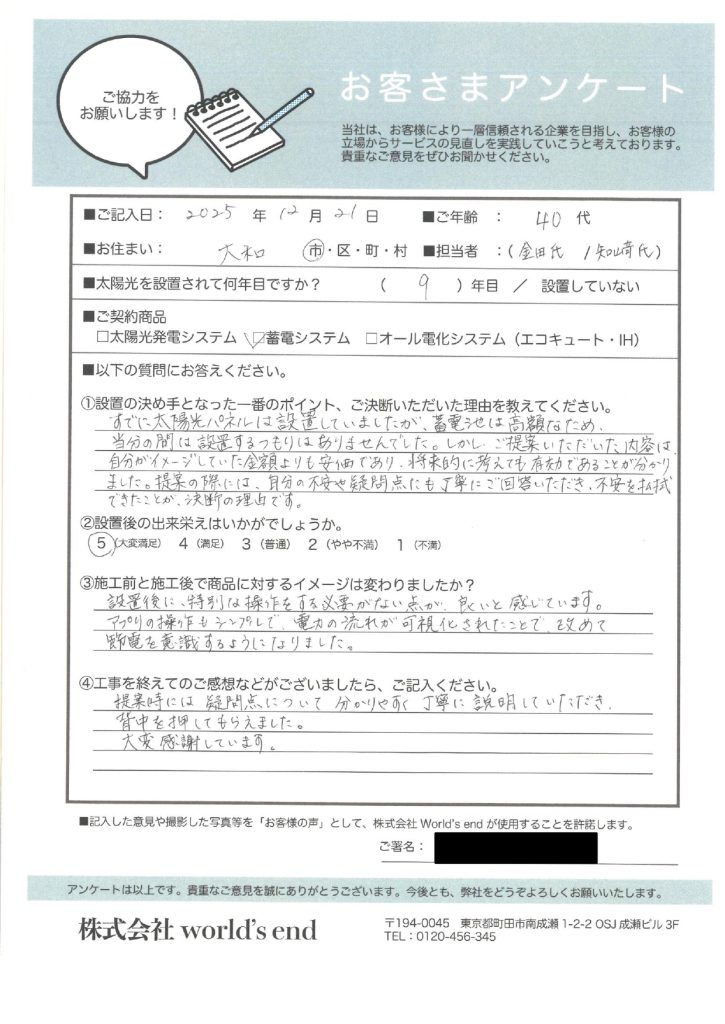 ご協力を
お願いします！
お客さまアンケート
当社は、お客様により一層信頼される企業を目指し、お客様の
立場からサービスの見直しを実践していこうと考えております。
貴重なご意見をぜひお聞かせください。
■ご記入日： 2025 年 12 月 21 日 ■ご年齢 ： 40 代
■お住まい： 大和 市・区・町・村 ■担当者 ：（ 金田氏 / 知崎氏）
■太陽光を設置されて何年目ですか？ （ 9 ）年目 ／ 設置していない
■ご契約商品
□太陽光発電システム ☑蓄電システム □オール電化システム（エコキュート・IH）
■以下の質問にお答えください。
①設置の決め手となった一番のポイント、ご決断いただいた理由を教えてください。
すでに太陽光パネルは設置していましたが、蓄電池は高額なため、
当分の間は設置するつもりはありませんでした。しかし、ご提案いただいた内容は
自分がイメージしていた金額よりも安価であり、将来的に考えても有効であることが分かり
ました。提案の際には、自分の不安や疑問点にも丁寧にご回答いただき、不安を払拭
できたことが、決断の理由です。
②設置後の出来栄えはいかがでしょうか。
5（大変満足） 4（満足） 3（普通） 2（やや不満） 1（不満）
③施工前と施工後で商品に対するイメージは変わりましたか？
設置後に、特別な操作をする必要がない点が、良いと感じています。
アプリの操作もシンプルで、電力の流れが可視化されたことで、改めて
節電を意識するようになりました。
④工事を終えてのご感想などがございましたら、ご記入ください。
提案時には疑問点について分かりやすく丁寧に説明していただき、
背中を押してもらえました。
大変感謝しています。
■記入した意見や撮影した写真等を「お客様の声」として、株式会社 World's end が使用することを許諾します。
ご署名：
アンケートは以上です。貴重なご意見を誠にありがとうございます。今後とも、弊社をどうぞよろしくお願いいたします。
株式会社 world's end
〒194-0045 東京都町田市南成瀬 1-2-2 OSJ 成瀬ビル 3F
TEL：0120-456-345